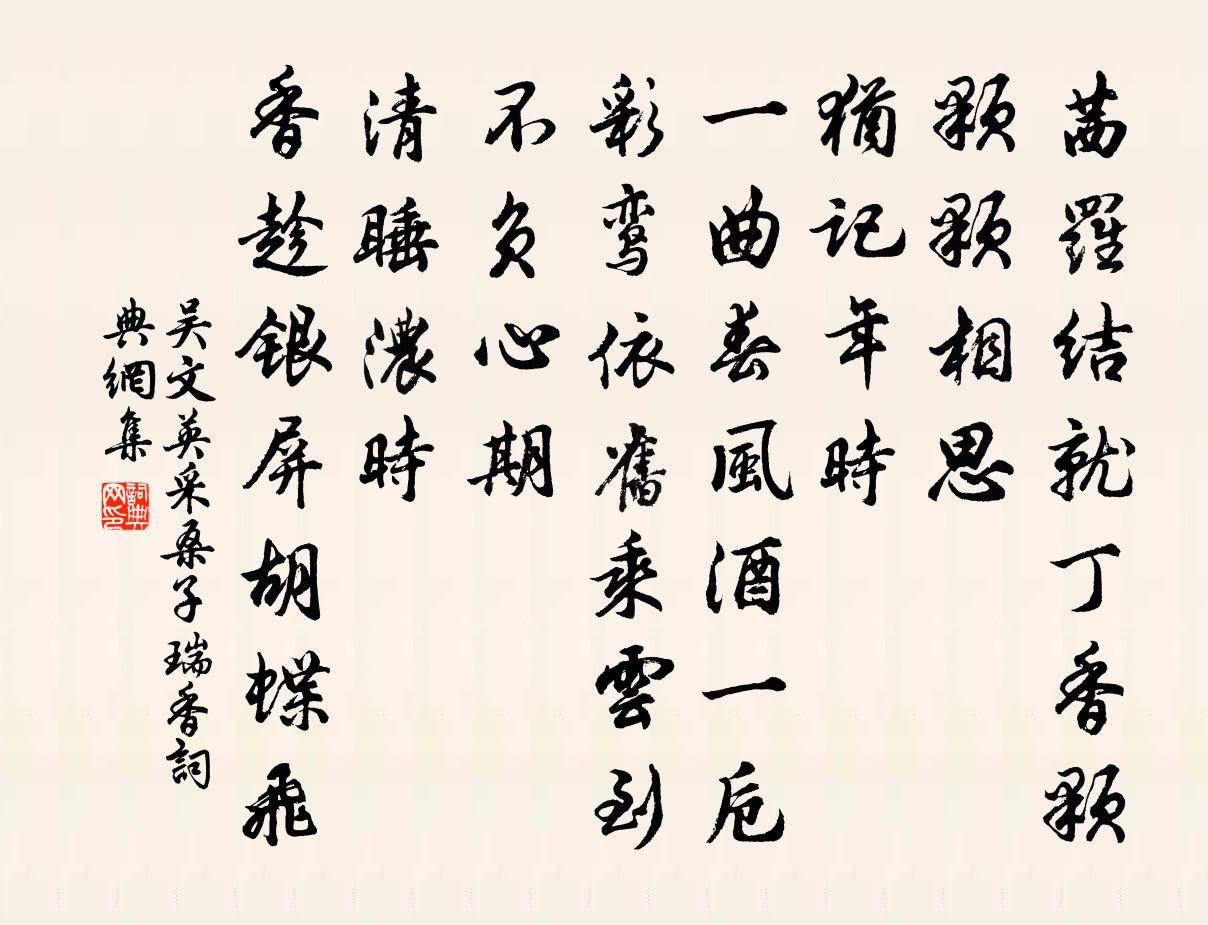 茜羅結就丁香顆
顆顆相思
猶記年時
一曲春風酒一卮
彩鸾依舊乘雲到
不負心期
清睡濃時
香趁銀屏胡蝶飛
吴文英采桑子瑞香詞
典網集
詞典网印